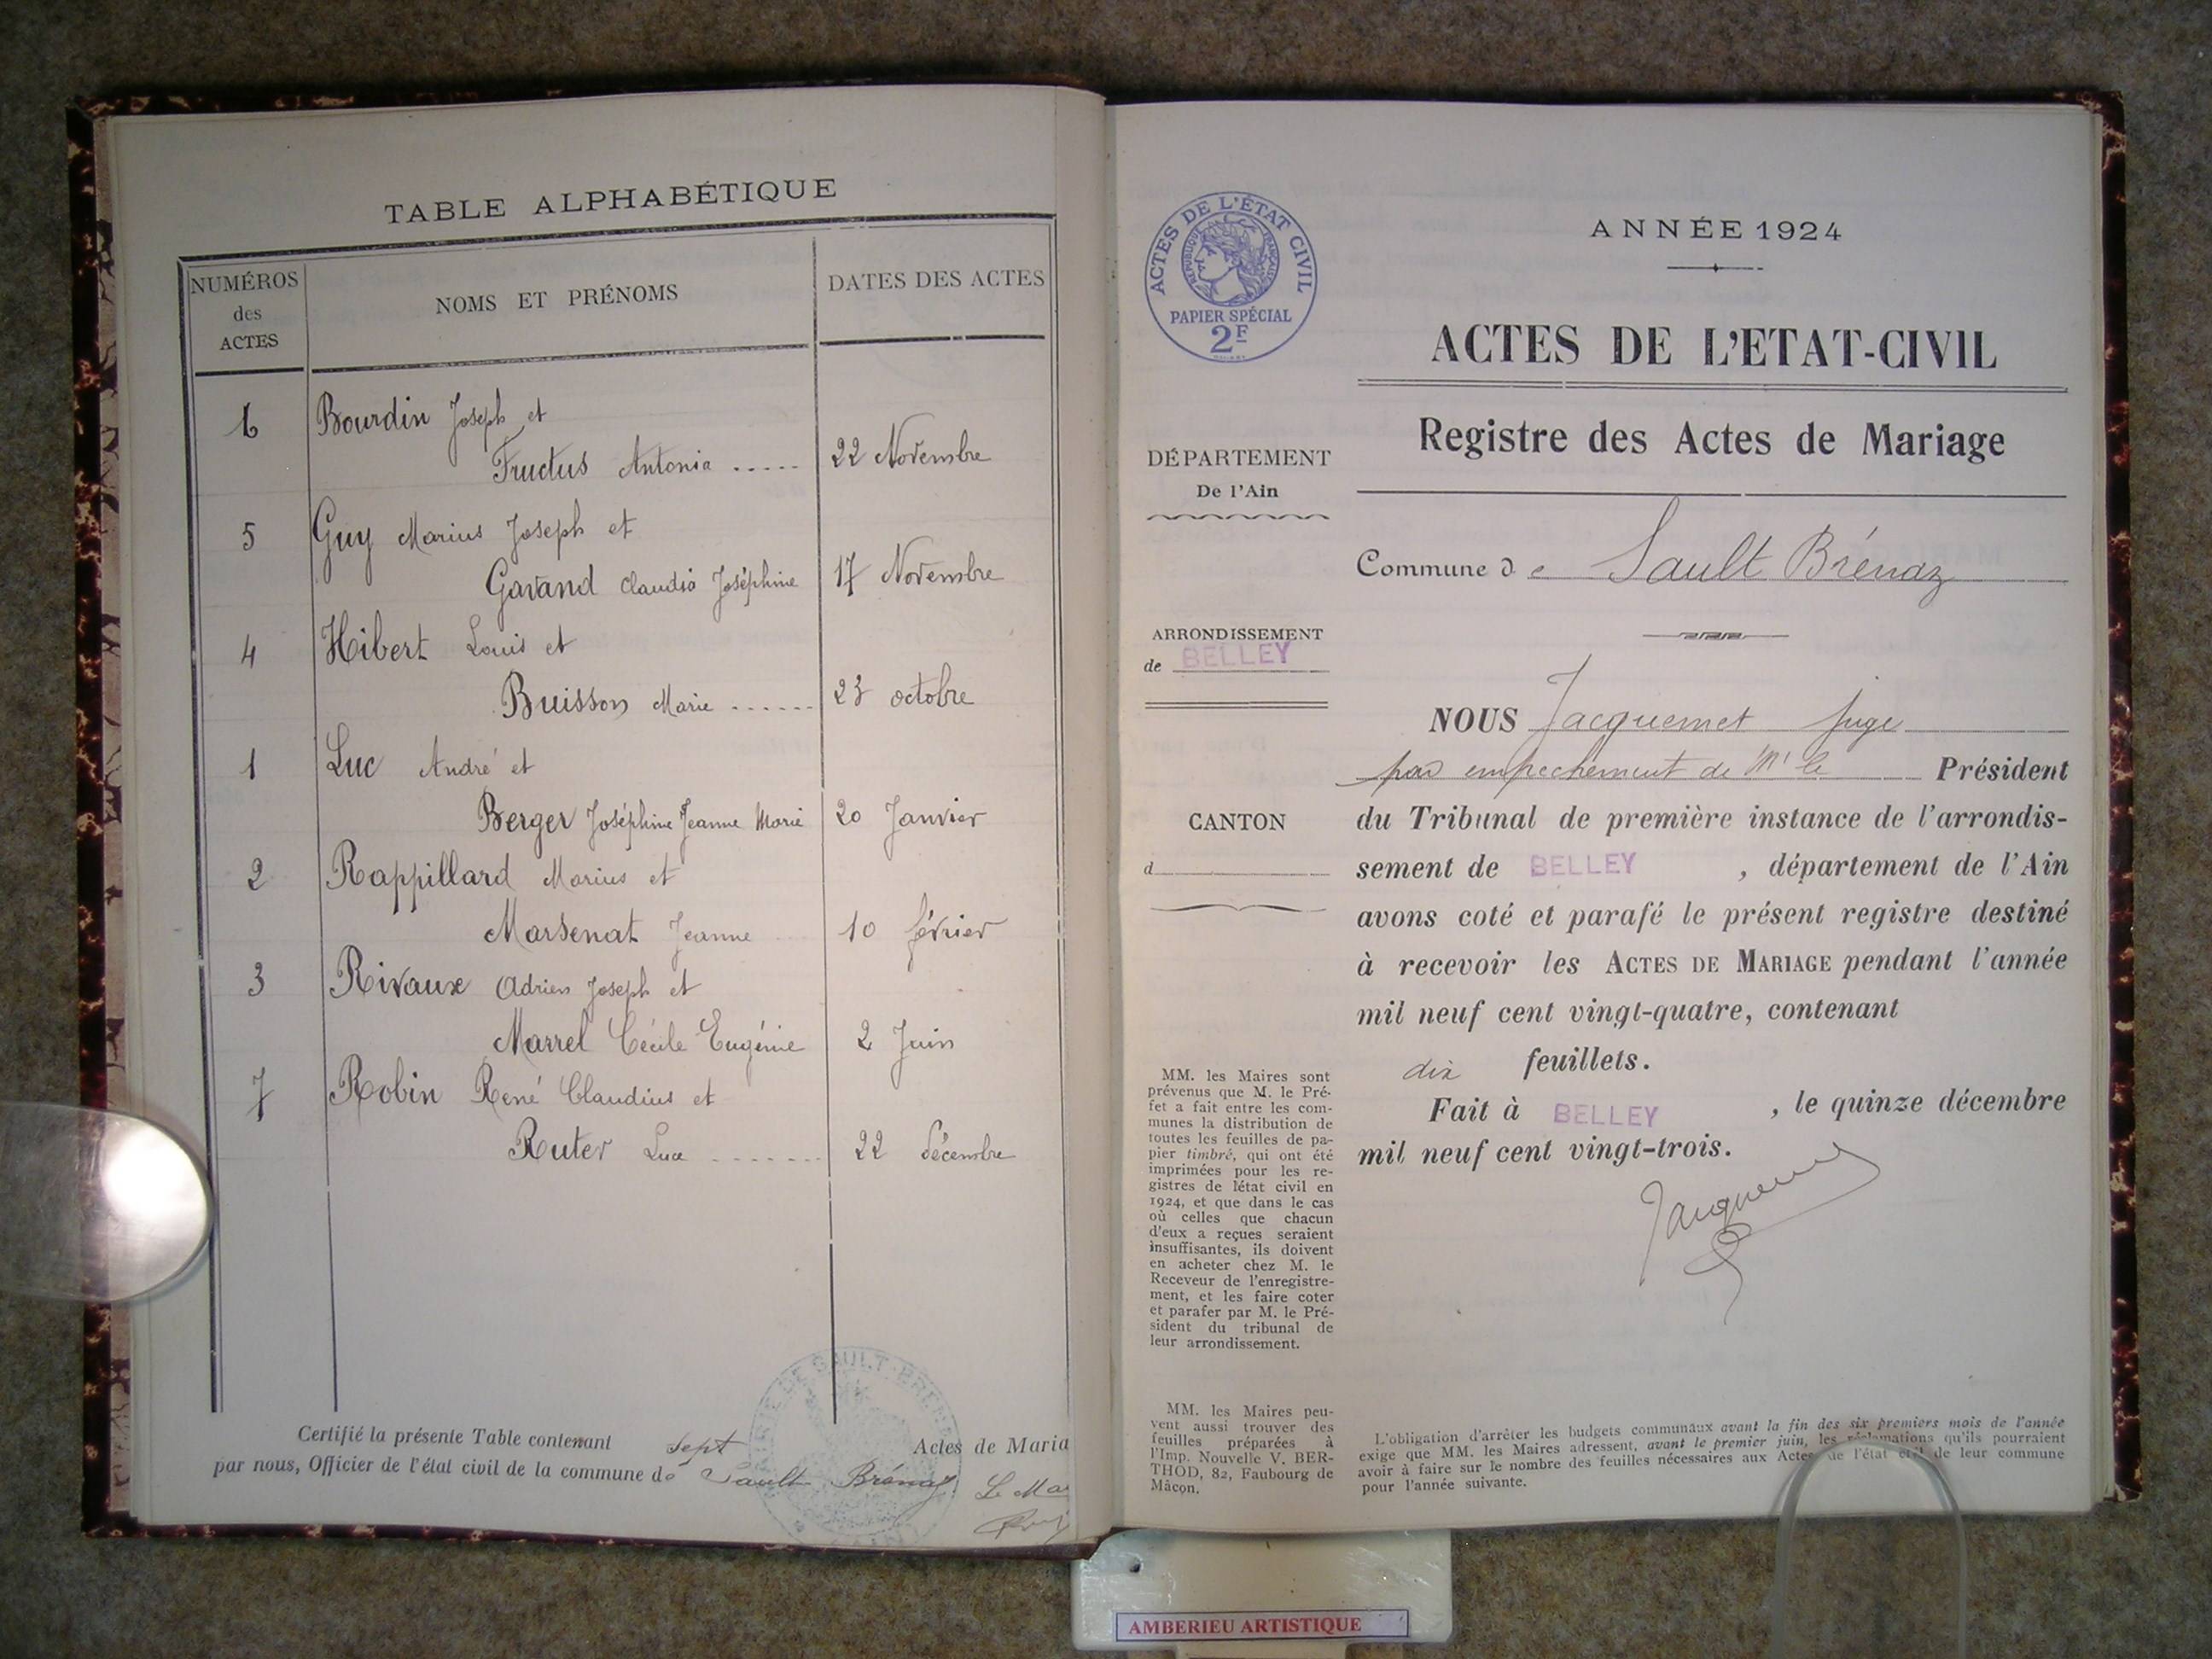 TABLE ALPHABÉTIQUE
NUMÉROS
des
ACTES
NOMS ET PRÉNOMS
DATES DES ACTES
6 Bourdin Joseph et
Fructus Antonia ..... 22 Novembre
5 Guy Marius Joseph et
Gavand Claudia Joséphine 17 Novembre
4 Hibert Louis et
Buisson Marie ...... 23 octobre
1 Luc André et
Berger Joséphine Jeanne Marie 20 Janvier
2 Rappillard Marius et
Marsenat Jeanne 10 février
3 Rivaux Adrien Joseph et
Marrel Cécile Eugénie 2 Juin
7 Robin René Claudius et
Ruter Luce ....... 22 décembre
Certifié la présente Table contenant sept Actes de Maria
par nous, Officier de l'état civil de la commune de Sault Brénaz. Le Ma
ACTES DE L'ÉTAT CIVIL
RÉPUBLIQUE FRANÇAISE
PAPIER SPÉCIAL
2F
DÉPARTEMENT
De l'Ain
ARRONDISSEMENT
de BELLEY
CANTON
d
MM. les Maires sont
prévenus que M. le Pré-
fet a fait entre les com-
munes la distribution de
toutes les feuilles de pa-
pier timbré, qui ont été
imprimées pour les re-
gistres de létat civil en
1924, et que dans le cas
où celles que chacun
d'eux a reçues seraient
insuffisantes, ils doivent
en acheter chez M. le
Receveur de l'enregistre-
ment, et les faire coter
et parafer par M. le Pré-
sident du tribunal de
leur arrondissement.
MM. les Maires peu-
vent aussi trouver des
feuilles préparées à
l'Imp. Nouvelle V. BER-
THOD, 82, Faubourg de
Mâcon.
ANNÉE 1924
ACTES DE L'ETAT-CIVIL
Registre des Actes de Mariage
Commune de Sault Brénaz
NOUS Jacquemet Juge
par empêchement de Mr le Président
du Tribunal de première instance de l'arrondis-
sement de BELLEY, département de l'Ain
avons coté et parafé le présent registre destiné
à recevoir les ACTES DE MARIAGE pendant l'année
mil neuf cent vingt-quatre, contenant
dix feuillets.
Fait à BELLEY, le quinze décembre
mil neuf cent vingt-trois.
L'obligation d'arrêter les budgets communaux avant la fin des six premiers mois de l'année
exige que MM. les Maires adressent, avant le premier juin, les réclamations qu'ils pourraient
avoir à faire sur le nombre des feuilles nécessaires aux Actes de l'état civil de leur commune
pour l'année suivante.
AMBERIEU ARTISTIQUE